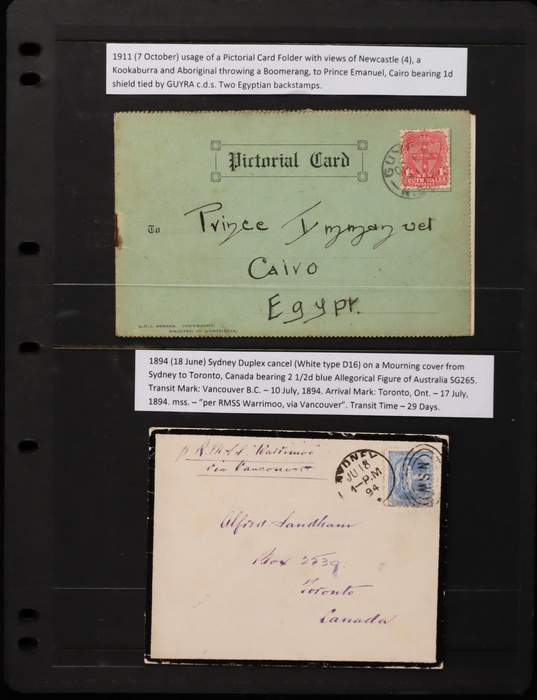 1911 (7 October) usage of a Pictorial Card Folder with views of Newcastle (4), a
Kookaburra and Aboriginal throwing a Boomerang, to Prince Emanuel, Cairo bearing 1d
shield tied by GUYRA c.d.s. Two Egyptian backstamps.
Pictorial Card
GUY
To Prince Immanuel
Cairo
Egypt.
A.N.J. SERIES. COPYRIGHT.
PRINTED IN AUSTRALIA.
1894 (18 June) Sydney Duplex cancel (White type D16) on a Mourning cover from
Sydney to Toronto, Canada bearing 2 1/2d blue Allegorical Figure of Australia SG265.
Transit Mark: Vancouver B.C. – 10 July, 1894. Arrival Mark: Toronto, Ont. – 17 July,
1894. mss. – "per RMSS Warrimoo, via Vancouver". Transit Time – 29 Days.
p R.M.S.S. Warrimoo
via Vancouver
SYDNEY
JU 18
1-P.M
94
NSW
Alfred Sandham
Box 2539.
Toronto
Canada